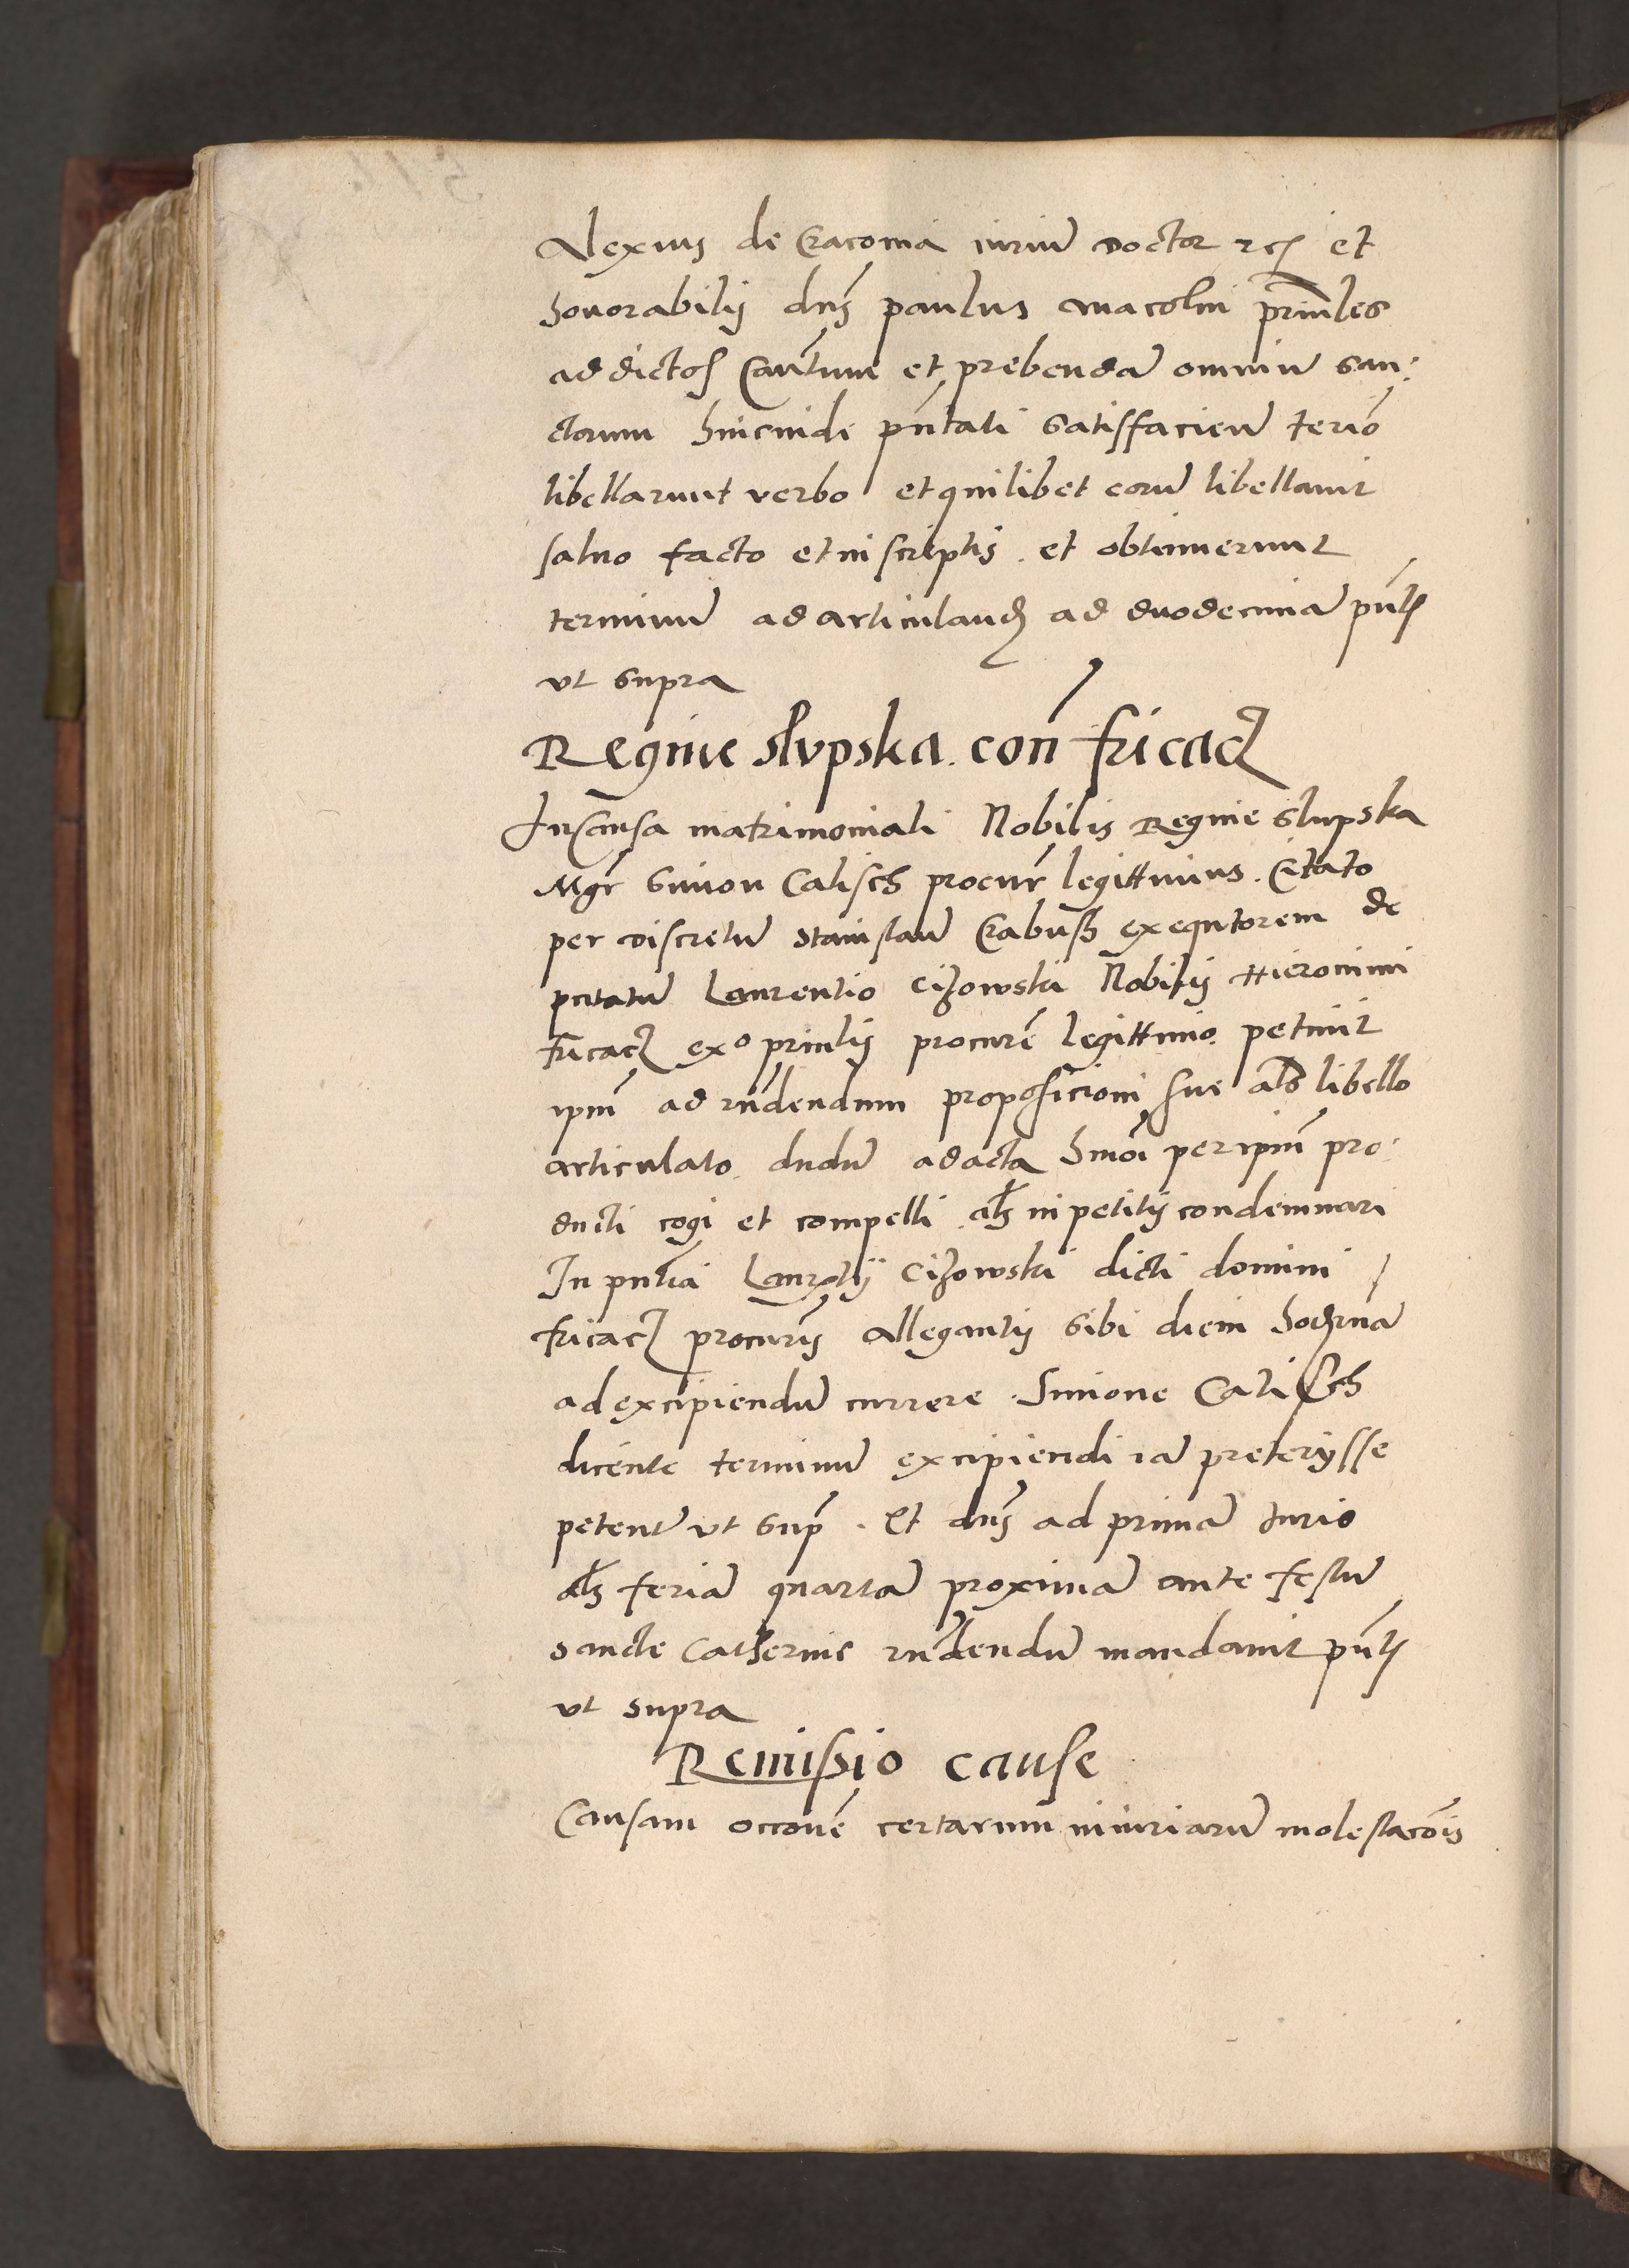 Alexius de Cracovia iuriu͂ doctor ꝛcꝫ et
honorabilis dn͂s paulus macolni prin͂les
ad dictos Can͂tum et prebenda͂ omniu͂ san:
ctorum hincinde pn͂tati satisfacien͂ terio͂
libellarunt verbo et quilibet eoru͂ libellauit
saluo facto et in scriptis . et obtinuerunt
terminu͂ ad articuland̃ ad duodecima͂ pn͂tꝭ
vt supra
Regine slvpska . con͂ fricacꝫ
In Causa matrimoniali Nobilis Regine Slupska
Mgr͂ Simon Calisch procur͂ legittimus . Citato
per discretu͂ Stanislau͂ Crabusch exequtorem de
putatu͂ Laurentio Cizowski Nobilis Hieronimi
fricacꝫ exᵒ prin͂lis procure͂ legittimo petiuit
ipm͂ ad rn͂dendum proposicioni sue als libello
articulato dudu͂ ad acta hmo͂i per ipm͂ pro:
ducti cogi et compelli als in petitis condemnari
In pn͂tia Laure͂tij Cizowski dicti domini
fricacꝫ procur͂is allegantis sibi diem hodierna͂
ad excipiendu͂ currere . Simone Calisch
dicente terminu͂ excipiendi ia͂ preterysse
petent͂ vt sup͂ . Et dn͂s ad prima͂ Iuris
als feria͂ quarta͂ proxima͂ ante festu͂
sancte Catherine rn͂dendu͂ mandauit pn͂tꝭ
vt supra
Remissio cause
Causam occone͂ certarum iniuriaru͂ molestaco͂is